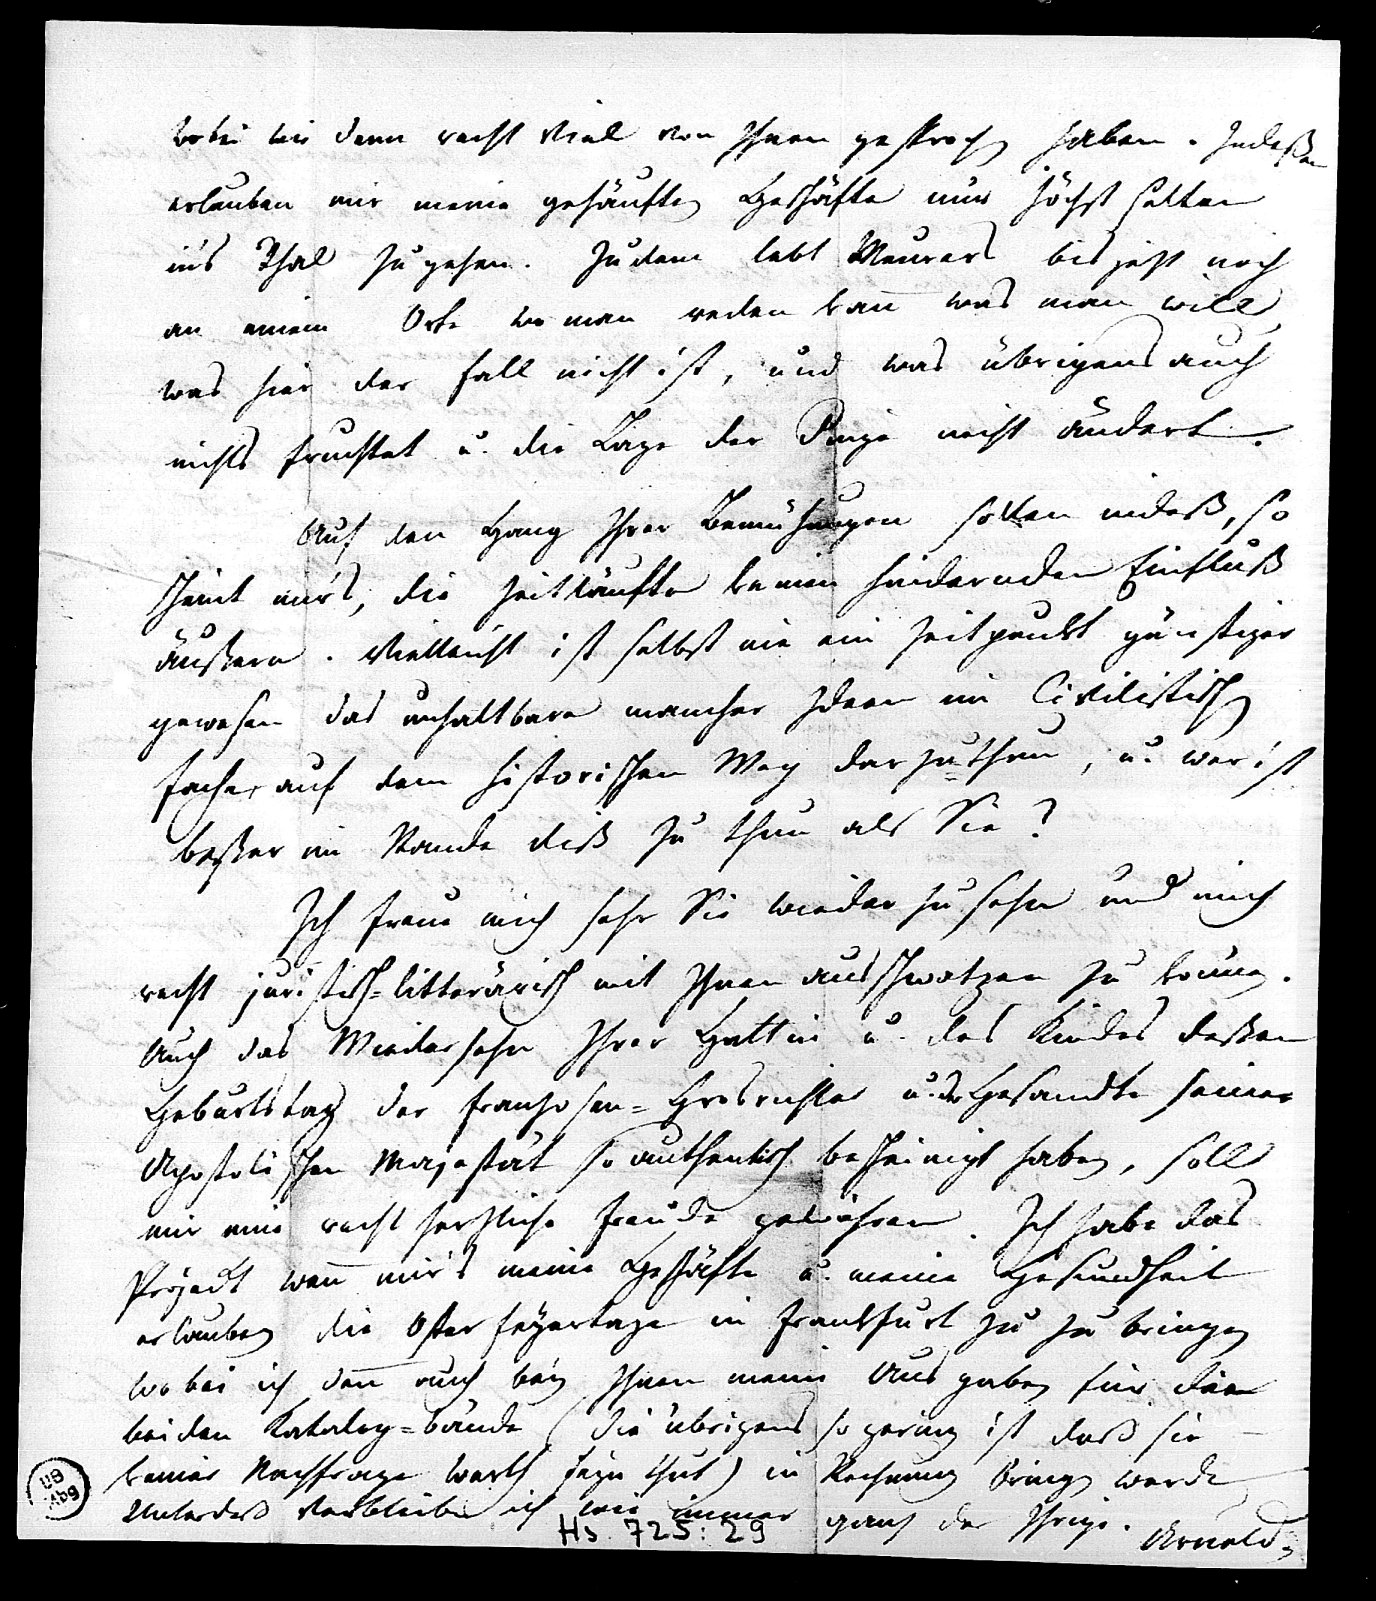 wobei wir denn recht viel von Ihnen gesproch haben. Indeßen
erlauben mir meine gehäuften Geschäfte nur höchst selten
in's Thal zu gehen. Zudem lebt Meurers bis jetzt noch
an einem Orte wo man reden kan̄ was man will,
was hier der Fall nicht ist, und was übrigens auch
nichts fruchtet u. die Lage der Dinge nicht ändert.
Auf den Gang Ihrer Bemühungen sollen indeß, so
scheint mir's, die Zeitläufte keinen hindernden Einfluß
äußern. Vielleicht ist selbst nie ein Zeitpunkt günstiger
gewesen das unhaltbare mancher Ideen im Civilistisch
Fache auf dem historischen Weg darzuthun, u. wer ist
beßer im Stande diß zu thun als Sie?
Ich freue mich sehr Sie wieder zu sehn und mich
recht juristisch=litterärisch mit Ihnen ausschwatzen zu können.
Auch das Wiedersehn Ihrer Gattin u. des Kindes deßen
Geburtstag der Franzosen=Grosrichter u. der Gesandte seiner
Apostolischen Majestät so authentisch bescheinigt haben, soll
mir eine recht herzliche Freude gewähren. Ich habe das
Project wen̄ mir's meine Geschäfte u. meine Gesundheit
erlauben die Osterfeyertage in Frankfurt zu zu bringen
wobei ich den̄ auch bey Ihnen meine Ausgaben für die
beiden Katalog=bände (die übrigens so gering ist daß sie
keiner Nachfrage werth seyn thut) in Rechnung bringen werde
Unterdeß verbleibe ich wie immer ganz der Ihrige. Arnold
UB
Mbg
Hs. 725:29